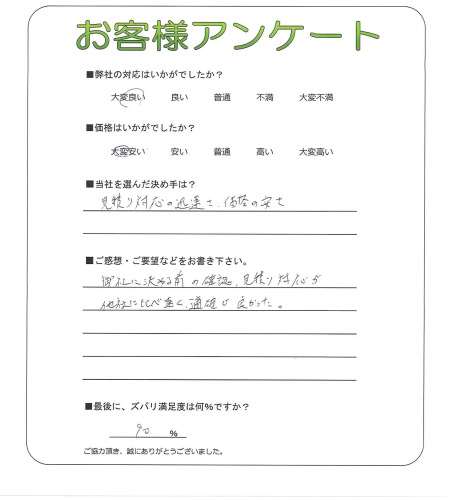 お客様アンケート
■弊社の対応はいかがでしたか？
大変良い 良い 普通 不満 大変不満
■価格はいかがでしたか？
大変安い 安い 普通 高い 大変高い
■当社を選んだ決め手は？
見積り対応の迅速さ、価格の安さ
■ご感想・ご要望などをお書き下さい。
御社に決める前の確認、見積り対応が
他社に比べ速く、適確で良かった。
■最後に、ズバリ満足度は何%ですか？
90 %
ご協力頂き、誠にありがとうございました。